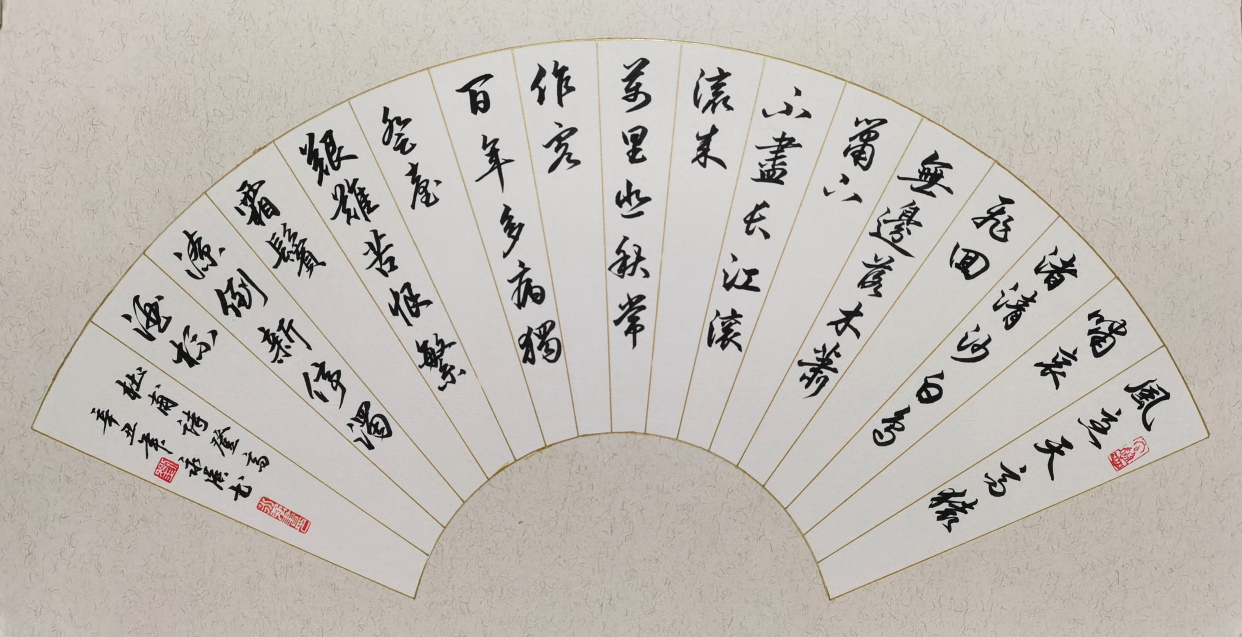 風急天高猿
嘯哀
渚清沙白鳥
飛回
無邊落木蕭
蕭下
不盡長江滾
滾来
萬里悲秋常
作客
百年多病獨
登臺
艱難苦恨繁
霜鬢
潦倒新停濁
酒杯
杜甫詩登高
辛丑年书